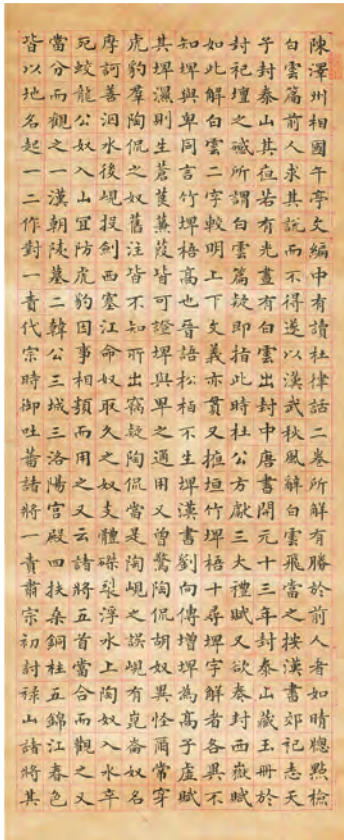 陳澤州相國午亭文編中有讀杜律話二卷所解有勝於前人者如晴牕點檢
白雲篇前人求其說而不得遂以漢武秋風辭白雲飛當之按漢書郊祀志天
子封泰山其夜若有光晝有白雲出封中唐書開元十三年封泰山藏玉冊於
封祀壇之䃭所謂白雲篇疑即指此時杜公方獻三大禮賦又欲奏封西嶽賦
如此解白雲二字較明上下文義亦貫又拖垣竹埤梧十尋埤字解者各異不
知埤與卑同言竹埤梧高也晉語松柏不生埤漢書劉向傳增埤為高子虛賦
其埤濕則生蒼莨蒹葭皆可證埤與卑之通用又曾驚陶侃胡奴異怪爾常穿
虎豹羣陶侃之奴舊注皆不知所出竊疑陶侃當是陶峴之誤峴有崑崙奴名
摩訶善泅水後峴投劍西塞江命奴取久之奴支體磔裂浮水上陶奴入水卒
死蛟龍公奴入山宜防虎豹因事相類而用之又云諸將五首當合而觀之又
當分而觀之一漢朝陵墓二韓公三城三洛陽宮殿四扶桑銅柱五錦江春色
皆以地名起一二作對一責代宗時御吐蕃諸將一責肅宗初討祿山諸將其